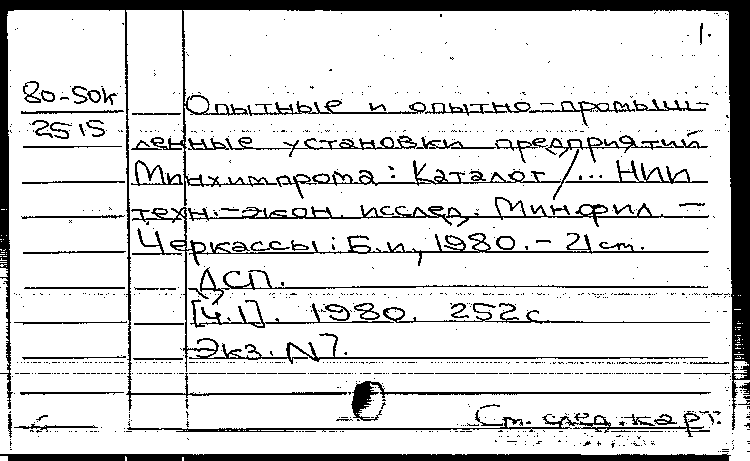 1.
80-50к
2515
Опытные и опытно-промыш-
ленные установки предприятий
Минхимпрома: Каталог / ... НИИ
техн.-экон. исслед. Минфил. -
Черкассы: Б.и., 1980. - 21 см.
ДСП.
[Ч.1]. 1980. 252с
Экз. N7.
См. след. карт.